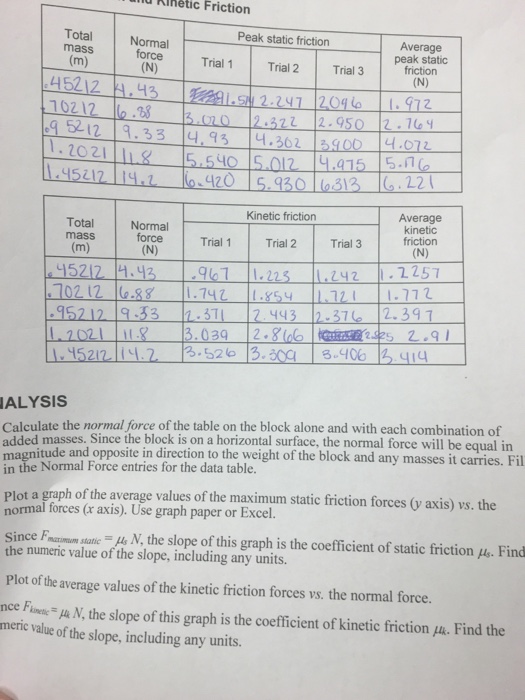 Kinetic Friction
Total mass (m) Normal force (N) Peak static friction Average peak static friction (N)
Trial 1 Trial 2 Trial 3
.45212 4.43 1.514 2.247 2.096 1.972
.70212 6.88 3.020 2.322 2.950 2.764
.95212 9.33 4.93 4.302 3.900 4.072
1.2021 11.8 5.540 5.012 4.975 5.176
1.45212 14.2 6.420 5.930 6.313 6.221
Total mass (m) Normal force (N) Kinetic friction Average kinetic friction (N)
Trial 1 Trial 2 Trial 3
.45212 4.43 .967 1.223 1.242 1.2257
.70212 6.88 1.742 1.854 1.721 1.772
.95212 9.33 2.371 2.443 2.376 2.397
1.2021 11.8 3.039 2.866 2.91
1.45212 14.2 3.526 3.309 3.406 3.414
ALYSIS
Calculate the normal force of the table on the block alone and with each combination of
added masses. Since the block is on a horizontal surface, the normal force will be equal in
magnitude and opposite in direction to the weight of the block and any masses it carries. Fil
in the Normal Force entries for the data table.
Plot a graph of the average values of the maximum static friction forces (y axis) vs. the
normal forces (x axis). Use graph paper or Excel.
Since Fmaximum static = μs N, the slope of this graph is the coefficient of static friction μs. Find
the numeric value of the slope, including any units.
Plot of the average values of the kinetic friction forces vs. the normal force.
nce Fkinetic = μk N, the slope of this graph is the coefficient of kinetic friction μk. Find the
meric value of the slope, including any units.